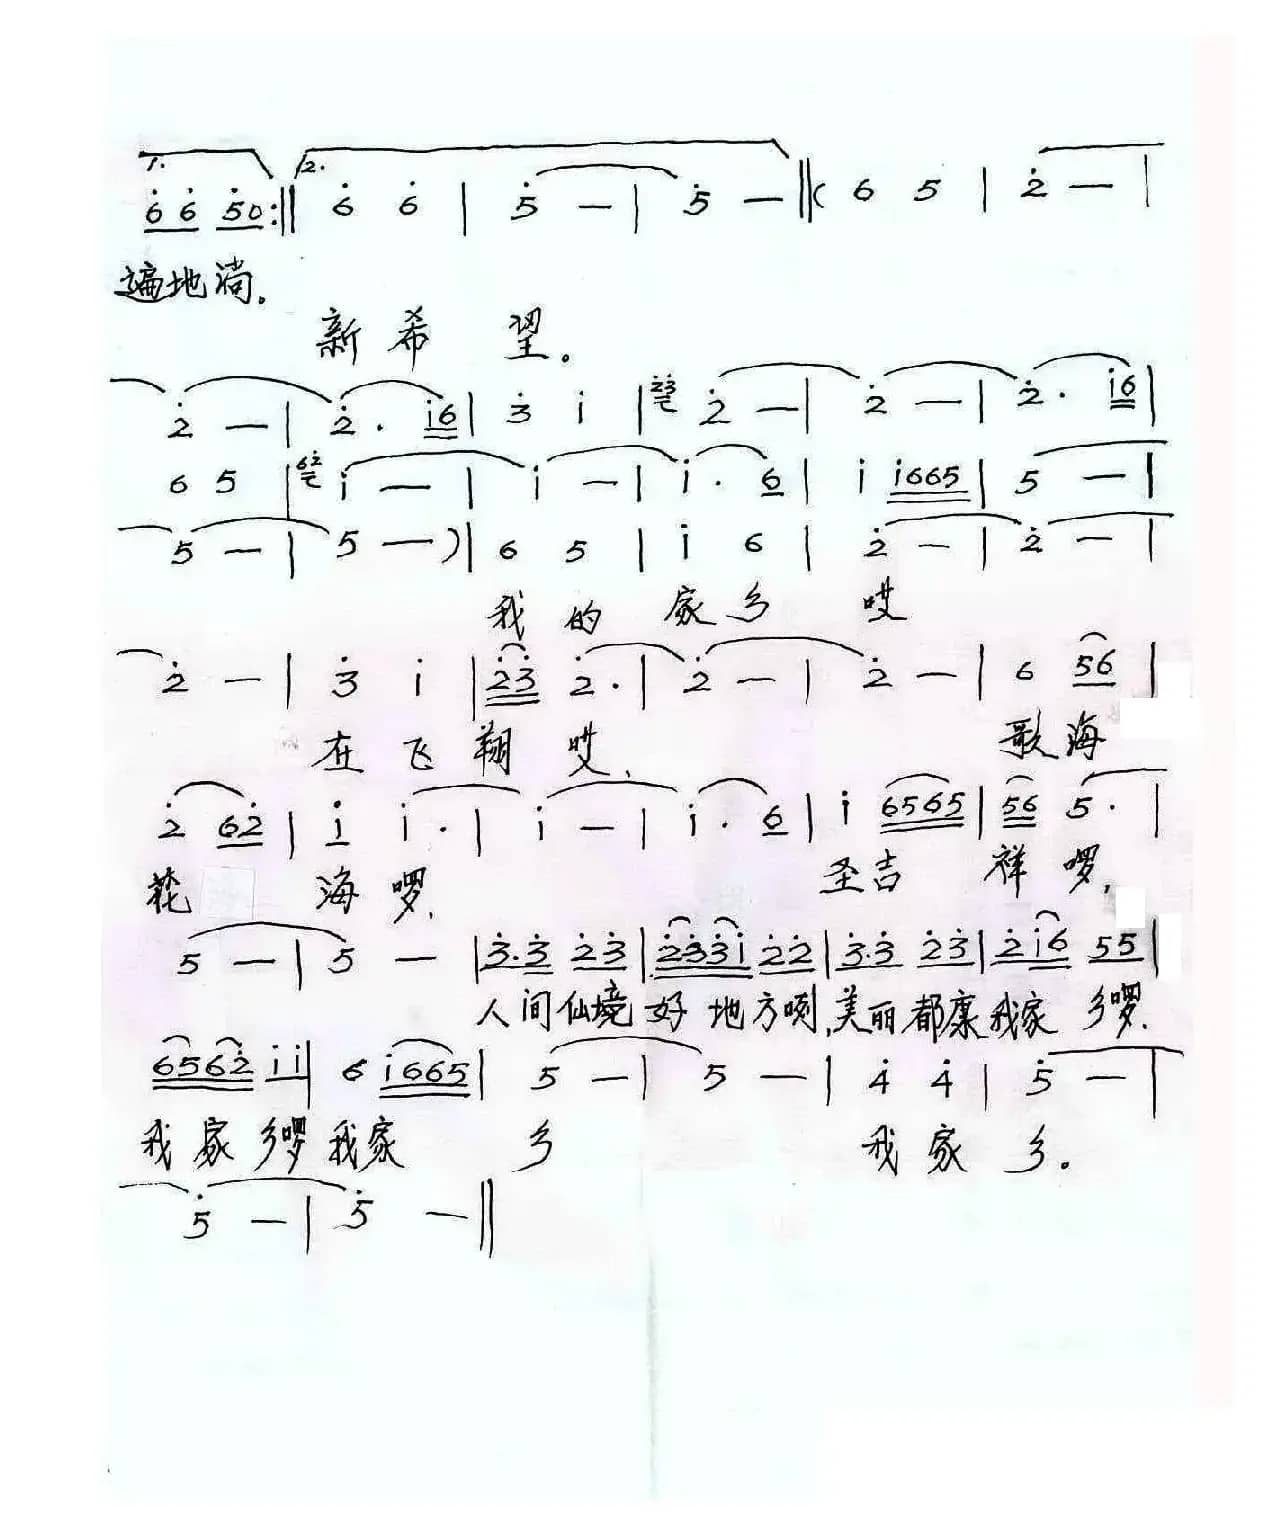 1. 2.
6̇ 6̇ 5̇0 :‖ 6̇ 6̇ | 5̇ — | 5̇ — ‖( 6 5 | 2̇ — |
遍地淌。
新希望。
2̇ — | 2̇ · i̇6 | 3̇ i̇ | 2̇3̇ 2̇ — | 2̇ — | 2̇ · i̇6 |
6 5 | 62̇ i̇ — | i̇ — | i̇ · 6 | i̇ i̇665 | 5 — |
5 — | 5 — ) | 6 5 | i̇ 6 | 2̇ — | 2̇ — |
我的家乡哎
2̇ — | 3̇ i̇ | 2̇3̇ 2̇ · | 2̇ — | 2̇ — | 6 56 |
在飞翔哎、歌海
2̇ 62̇ | i̇ i̇ · | i̇ — | i̇ · 6 | i̇ 6565 | 56 5 · |
花海啰、圣吉祥啰,
5 — | 5 — | 3̇·3̇ 2̇3̇ | 2̇3̇3̇i̇ 2̇2̇ | 3̇·3̇ 2̇3̇ | 2̇i̇6 55 |
人间仙境好地方咧,美丽都康我家乡啰、
6562̇ i̇i̇ | 6 i̇665 | 5 — | 5 — | 4̇ 4̇ | 5̇ — |
我家乡啰我家乡我家乡。
5̇ — | 5̇ — ‖